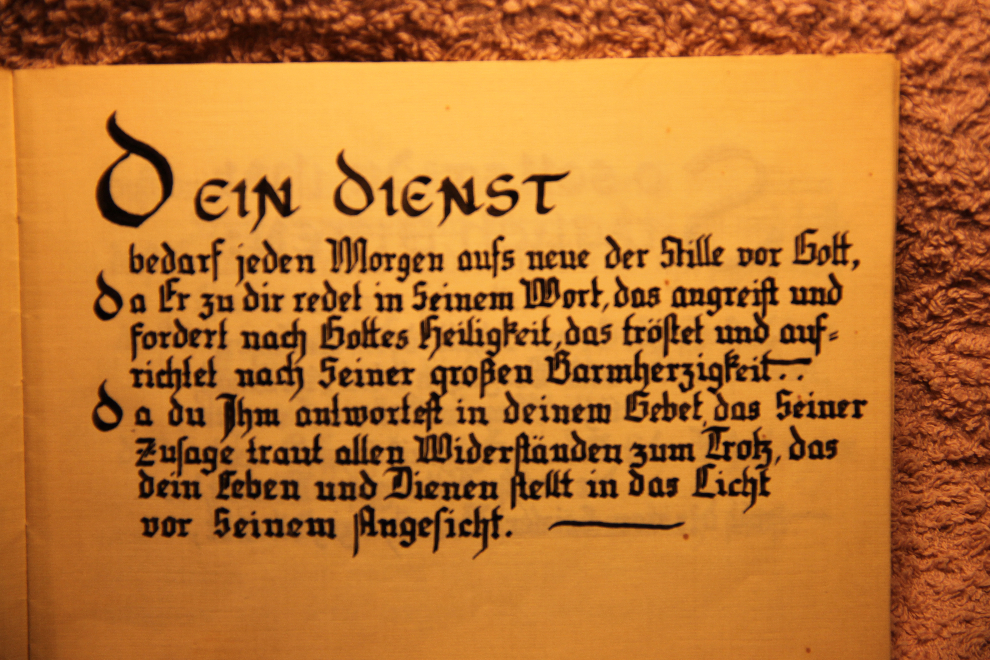 Dein Dienst
bedarf jeden Morgen aufs neue der Stille vor Gott,
da Er zu dir redet in Seinem Wort, das angreift und
fordert nach Gottes Heiligkeit, das tröstet und auf-
richtet nach Seiner großen Barmherzigkeit..
da du Ihm antwortest in deinem Gebet, das Seiner
Zusage traut allen Widerständen zum Trotz, das
dein Leben und Dienen stellt in das Licht
vor Seinem Angesicht. —